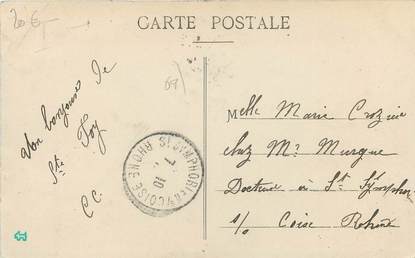 CARTE POSTALE
20 €
69
Mon bonjour de
Ste Foy
C.C.
ST SYMPHORIEN S/ COISE RHONE
7
10
Melle Marie Crozier
chez Mr Murgue
Docteur à St Symphor
s/ Coise Rhône